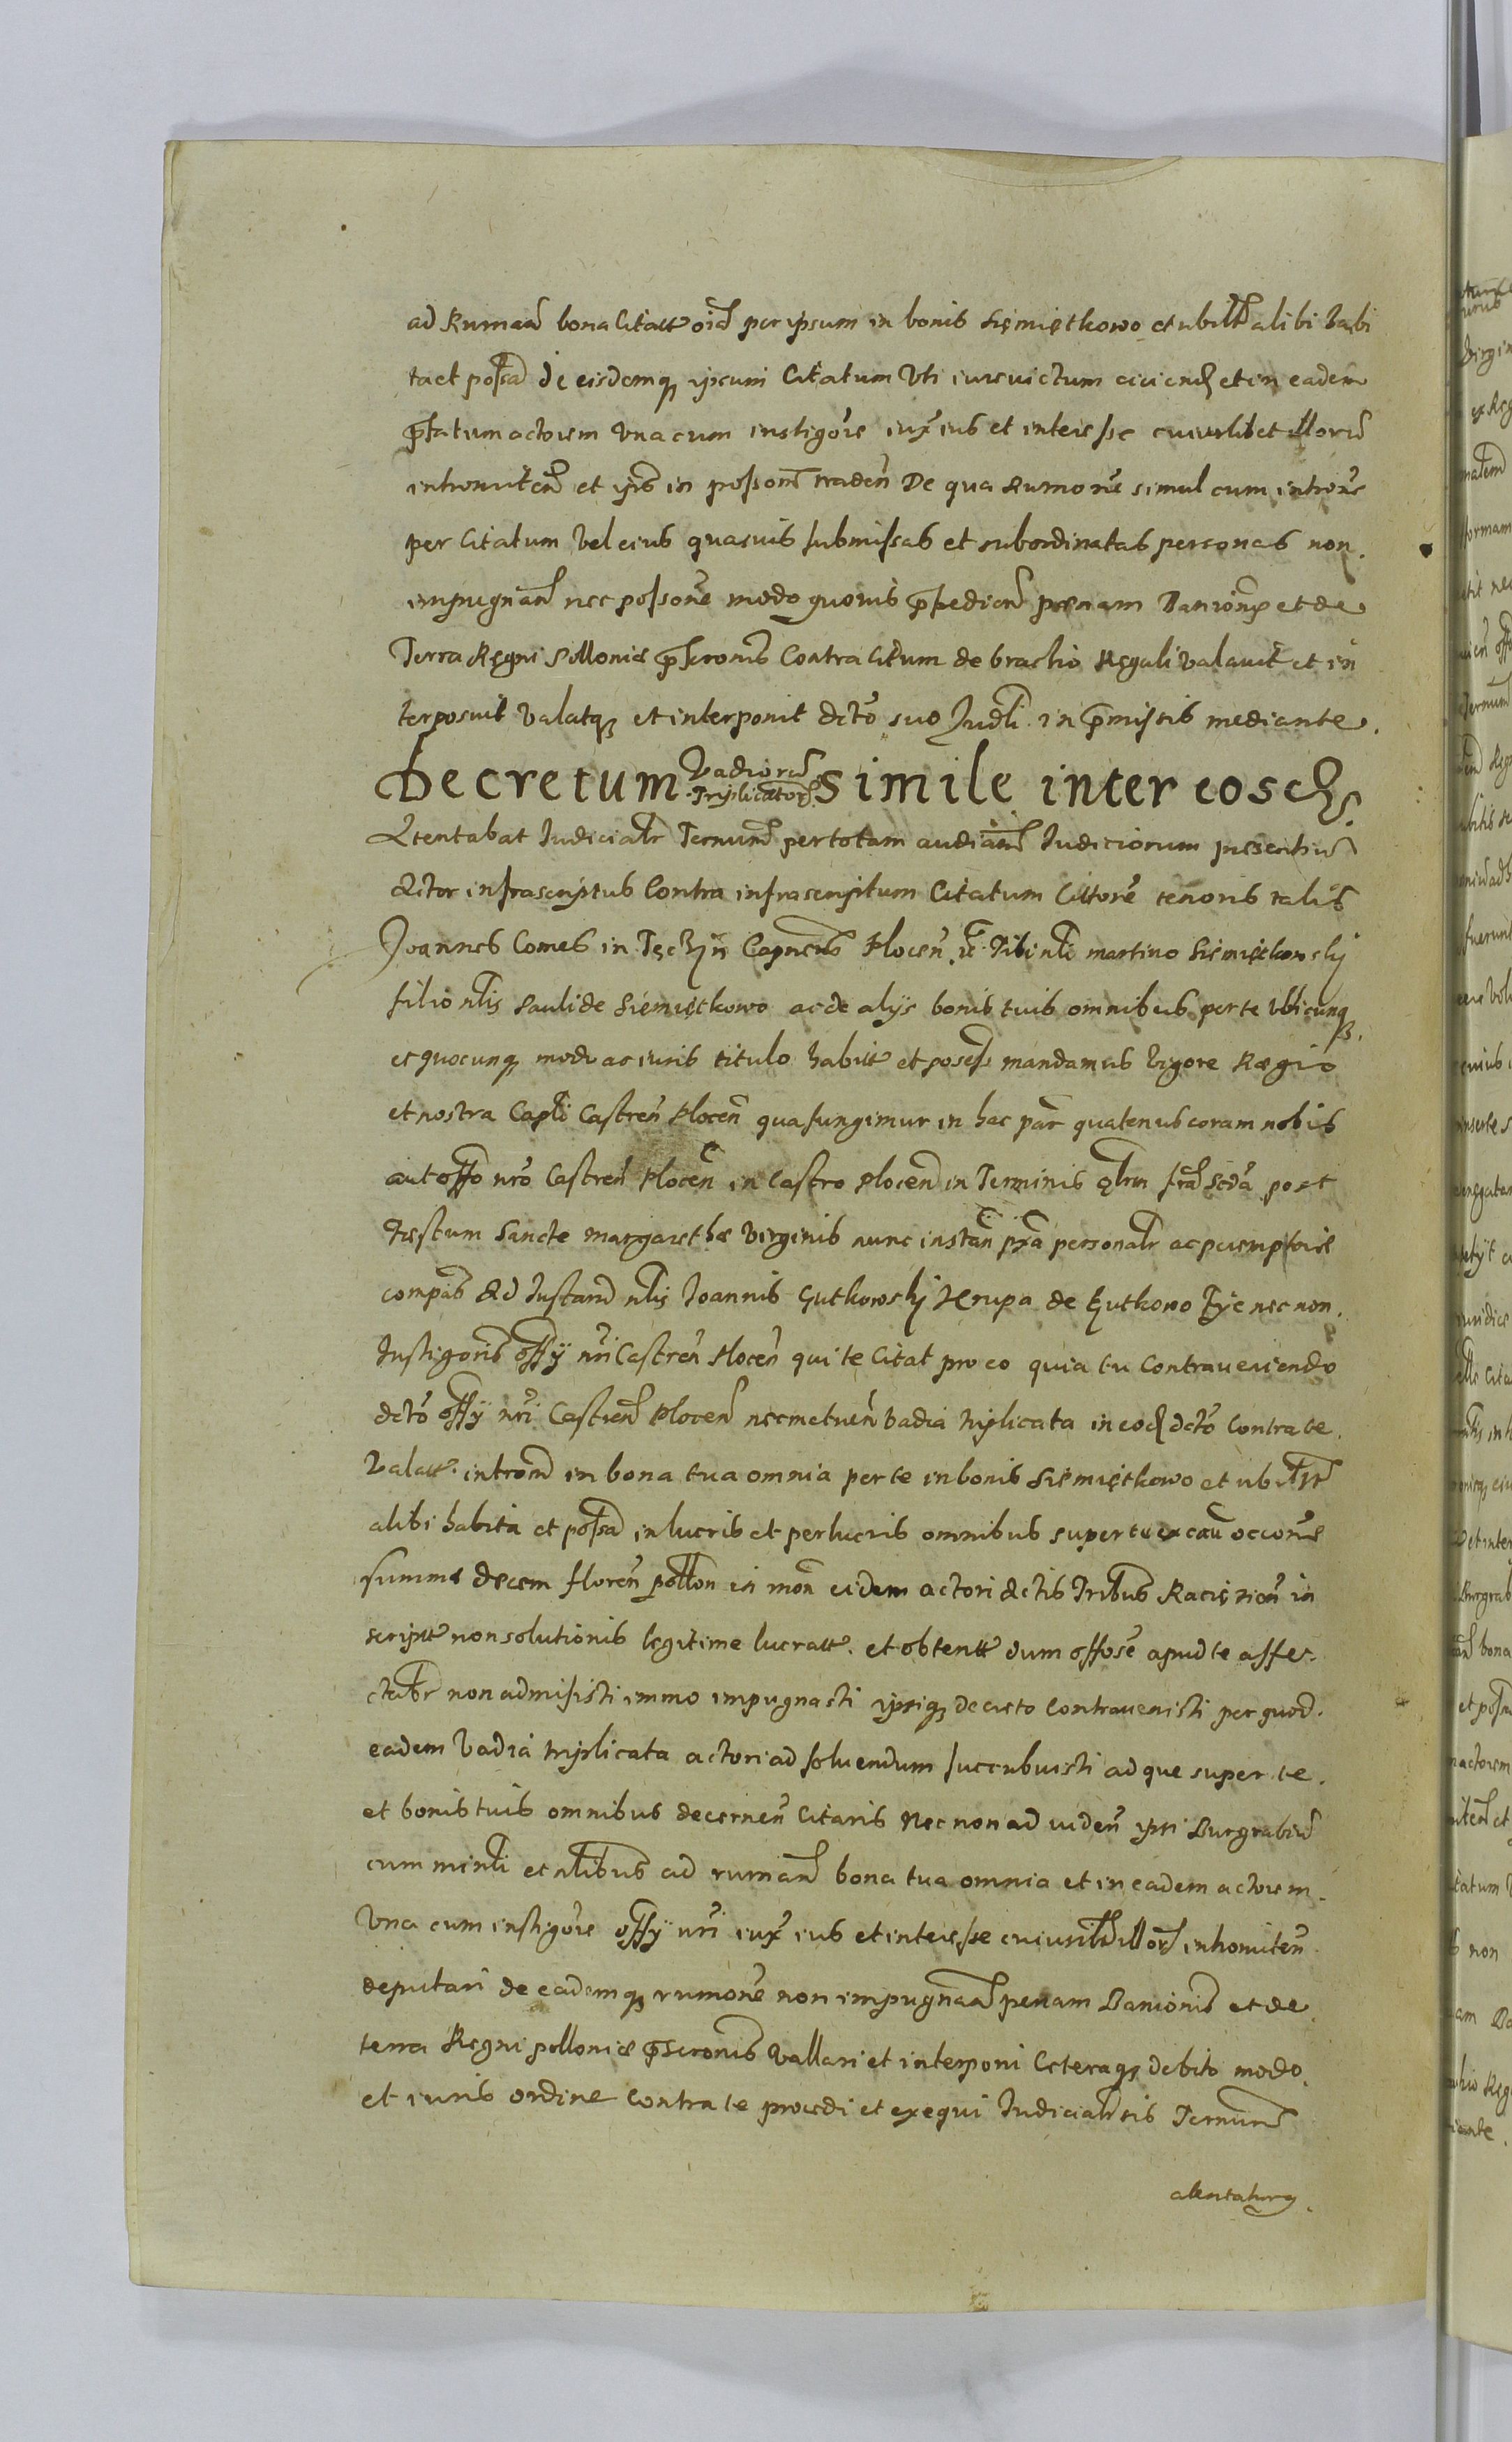 ad Rumañ bona Citatt oia per ipsum in bonis Siemiętkowo et ubilt alibi habi
ta et possa de eisdemq ipsum Citatum Vti iurevictum eiiciend et in eadem
pfatum actorem Vna cum instigore iux ius et interesse cuiuslibet illoru
intromitten et ipsis in possone traden De qua Rumone simul cum introne
per Citatum Vel eius quasvis submissas et subordinatas personas non.
impugnan nec possone modo quovis ppedien pænam Banionis et de
Terra Regni Polloniæ pscronis Contra Citum de brachio Regali Valavit et in
terposuit Valatq et interponit dcto suo Judli in pmissis mediante.
Decretum Vadioru Triplicator simile inter eosd.
Attentabat Judicialr Ternum per totam audiam Judiciorum presentiu
Actor infrascriptus Contra infrascriptum Citatum Cittone tenoris talis
Joannes Comes in Tęczyn Capneus Plocen. Tibi nli martino Siemiętkowsky
filio nlis Pauli de Siemiętkowo ac de alijs bonis tuis omnibus per te Vbicunq
et quocunq modo ac iuris titulo habitt et possess mandamus Vigore Rægio
et nostra Captli Castren Plocen qua fungimur in hac par quatenus coram nobis
aut offo nro Castren Plocen in Castro Plocen in Terminis qlrm fra scda post
Fæstum Sancte Margarethæ Virginis nunc instan pxa personalr ac peremptorie
compas Ad Instan nlis Joannis Gutkowsky Krupa de Gutkowo nec non.
Instigoris offij nri Castren Plocen qui te Citat pro eo quia tu Contraveniendo
dcto offij nri Castren Plocen nec metuen Vadia triplicata in eod dcto Contra te.
Valatt. introm in bona tua omnia per te in bonis Siemiętkowo et ubilt
alibi habita et possa in lucris et perlucris omnibus super te ex cau occone
summæ decem floren pollon in mon eidem actori actis Tribus Raciężien in
scriptt non solutionis legitime lucratt. et obtentt dum offose apud te affec.
ctabr non admisisti immo impugnasti ipsiq decreto Contravenisti per quod.
eadem Vadia triplicata actori ad soluendum succubuisti ad que super te.
et bonis tuis omnibus decernen Citaris Nec non ad viden ipsi Burgrabiu
cum minli et nlibus ad ruman bona tua omnia et in eadem actorem.
Vna cum instigore offij nri iux ius et interesse cuiuslibt illor intromitten
deputari de eademq rumone non impugnan penam Banionis et de.
terra Regni polloniæ pscronis Vallari et interponi Ceteraq debito modo.
et iuris ordine Contra te procedi et exequi Judicialr sis Ternum